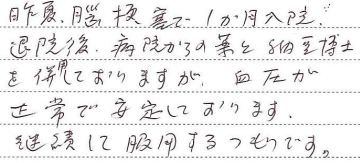 昨夏、脳梗塞で1か月入院。
退院後、病院からの薬と納豆博士
を併用しておりますが、血圧が
正常で安定しております。
継続して服用するつもりです。